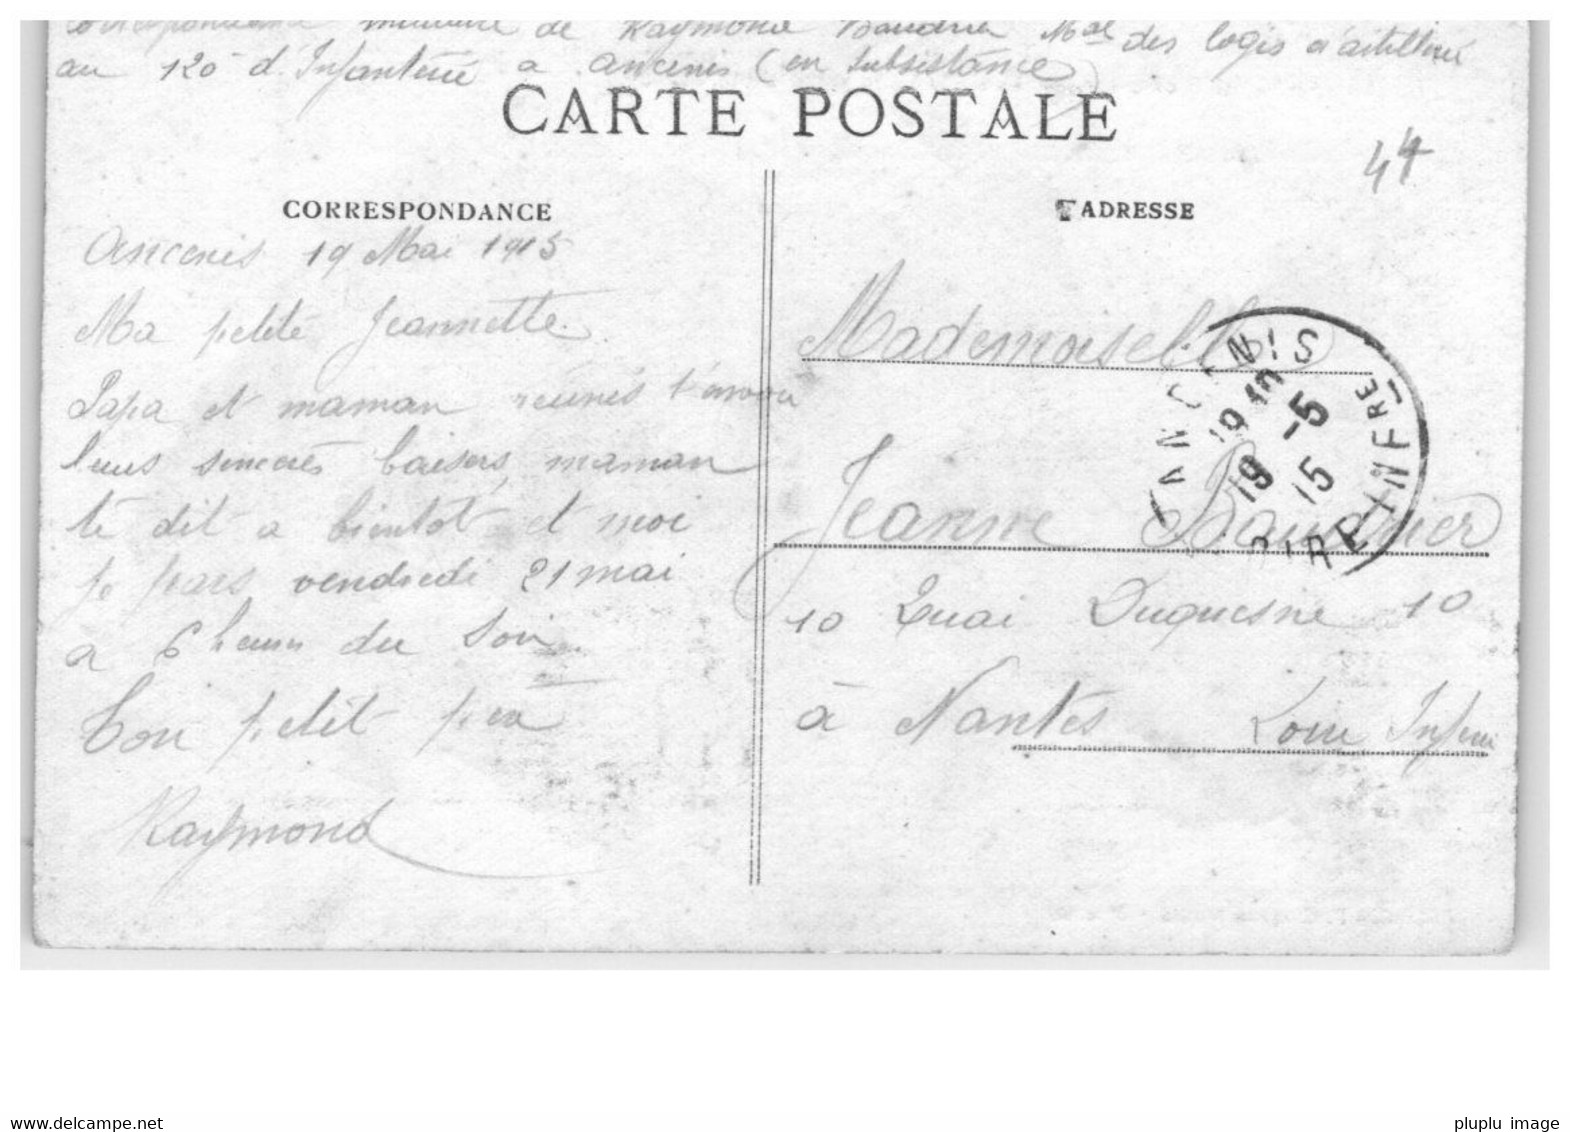 Correspondance militaire de Raymond Baudrier Mal des logis d'artillerie
au 120e d'Infanterie a Ancenis (en subsistance)
CARTE POSTALE
44
CORRESPONDANCE
Ancenis 19 Mai 1915
Ma petite Jeannette
Papa et maman réunis t'envoie
leurs sincères baisers, maman
te dit a bientot et moi
je pars vendredi 21 mai
a 6 heures du soir.
Ton petit père
Raymond
ADRESSE
Mademoiselle
Jeanne Baudrier
10 Quai Duquesne 10
à Nantes Loire Infre
ANCENIS
19 10
19 -5
15
LOIRE-INFRE
delcampe.net
pluplu_image